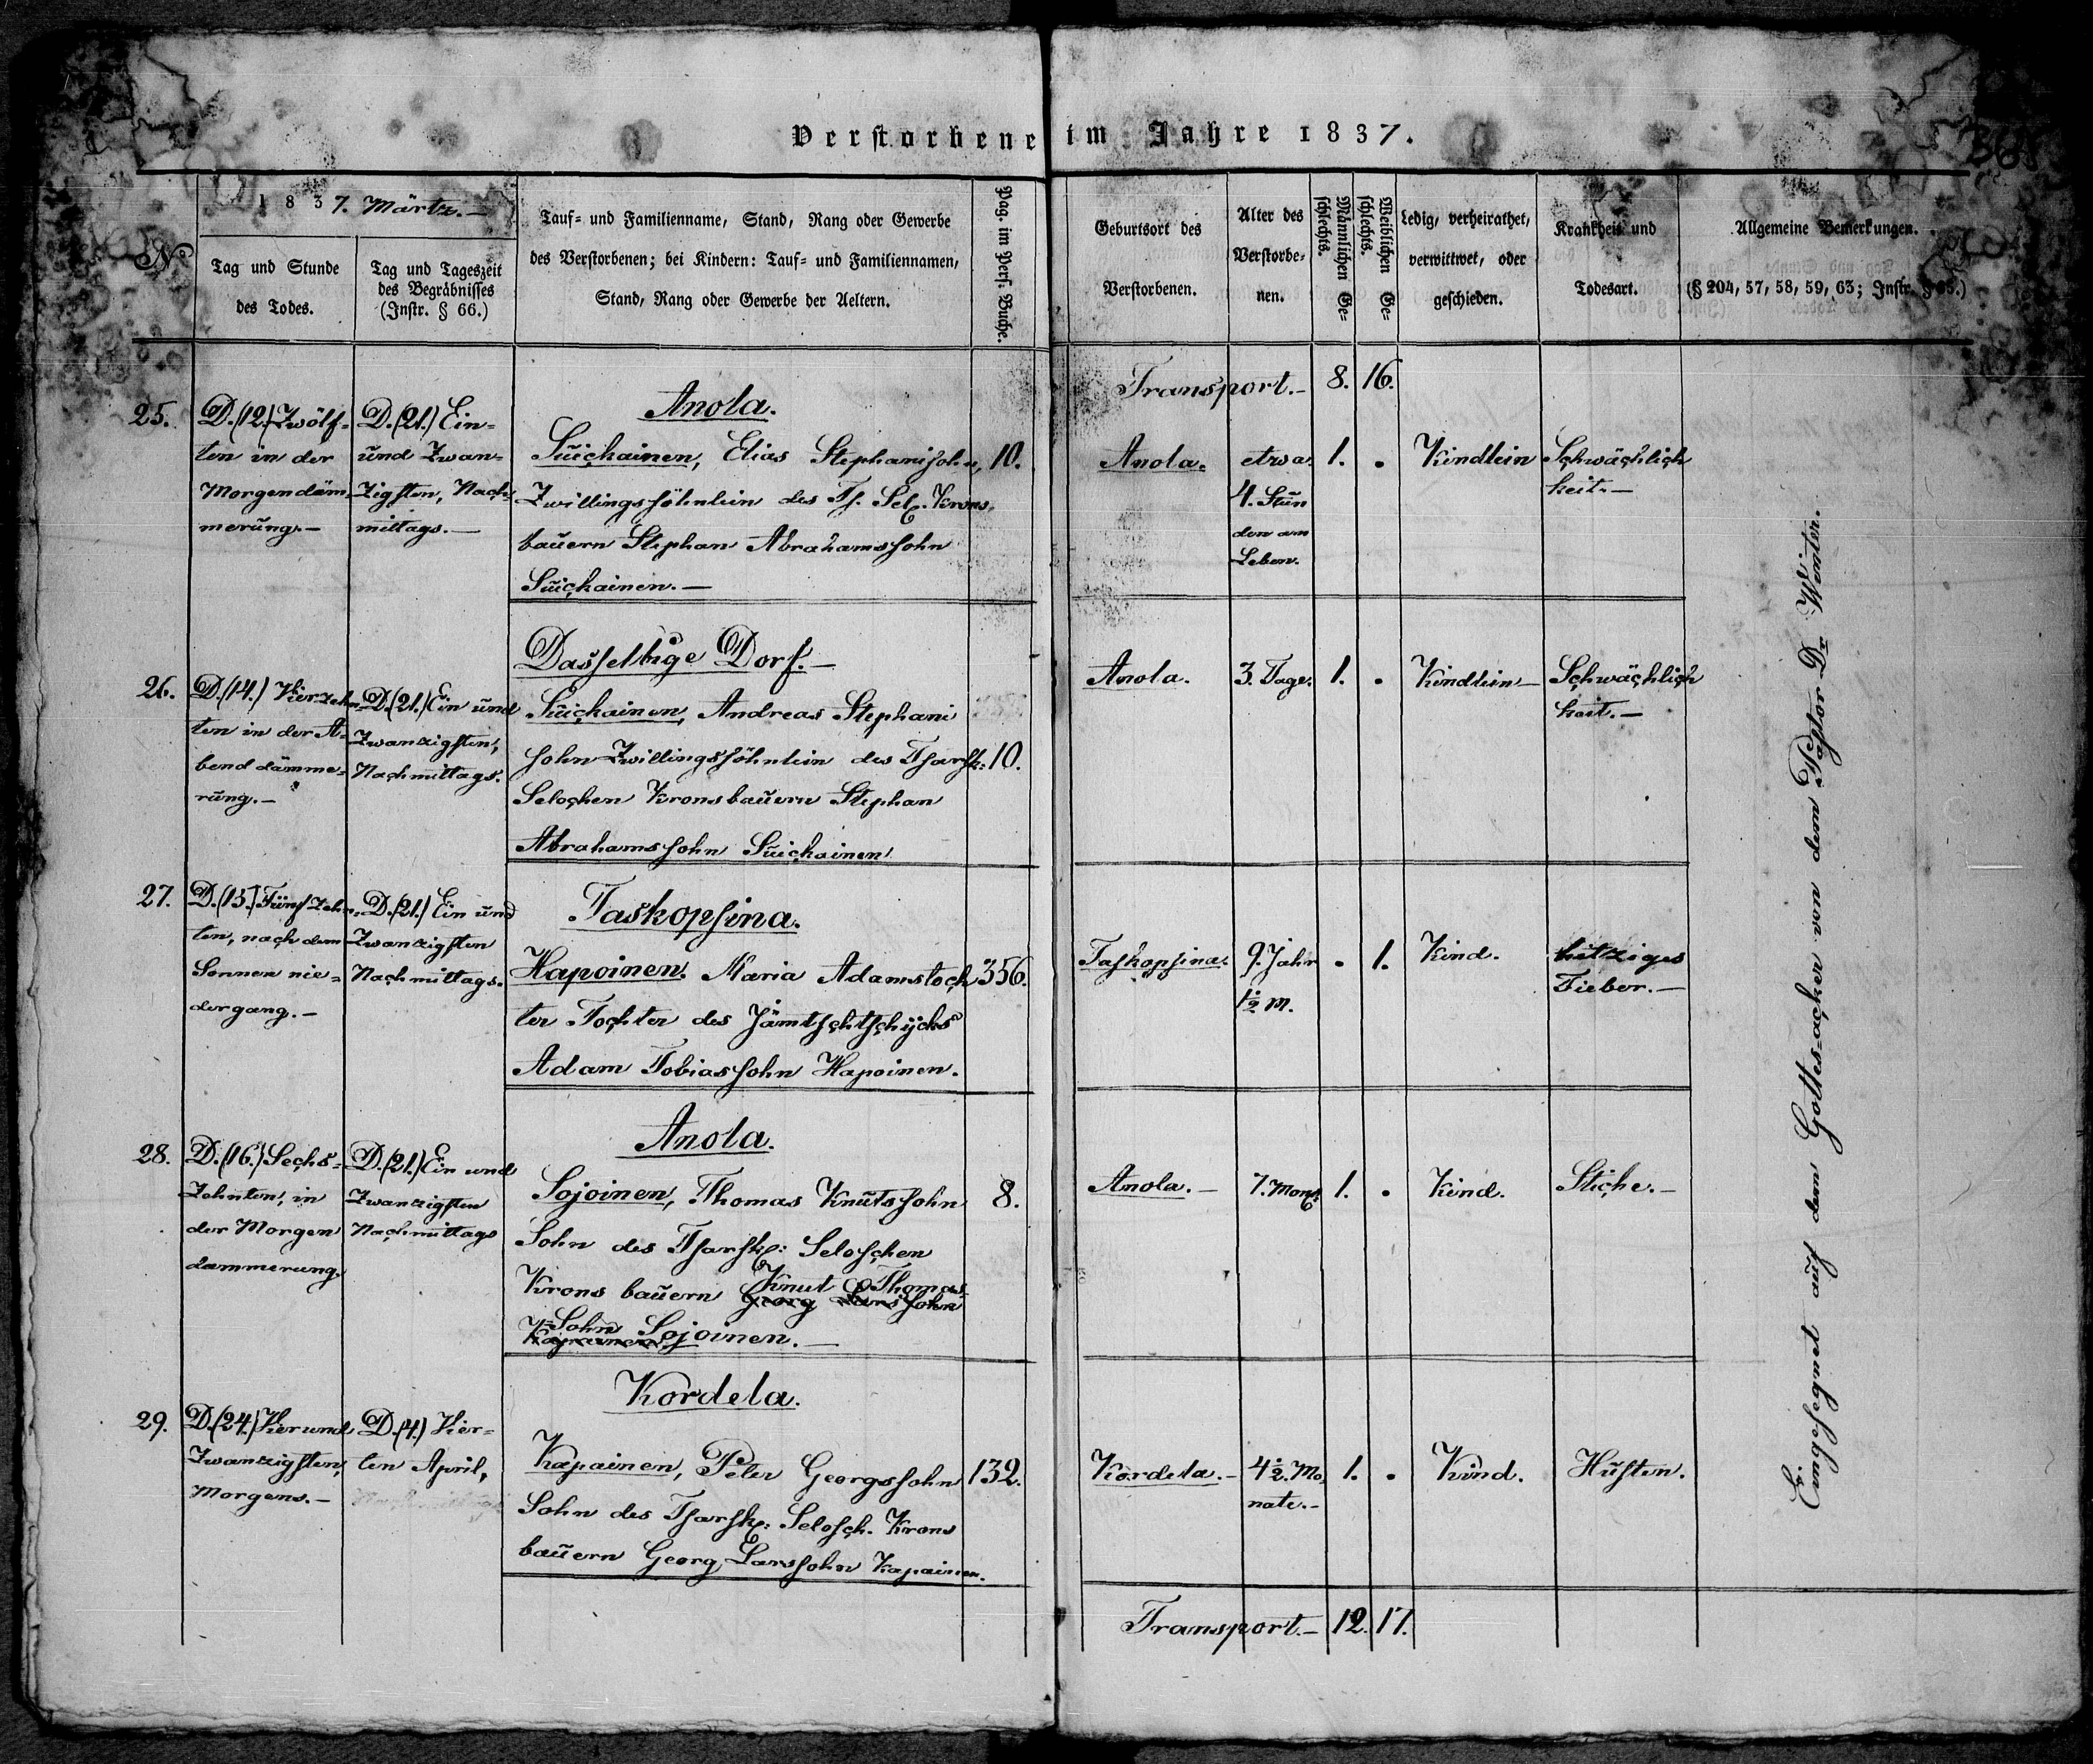 Verstorbene im Jahre 1837.
368
No
1837. Märtz.—
Tag und Stunde
des Todes.
Tag und Tageszeit
des Begräbnisses
(Instr. § 66.)
Tauf- und Familienname, Stand, Rang oder Gewerbe
des Verstorbenen; bei Kindern: Tauf- und Familiennamen,
Stand, Rang oder Gewerbe der Aeltern.
Pag. im Pers. Buche.
Geburtsort des
Verstorbenen.
Alter des
Verstorbe-
nen.
Männlichen Ge-
schlechts.
Weiblichen Ge-
schlechts.
Ledig, verheirathet,
verwittwet, oder
geschieden.
Krankheit und
Todesart.
Allgemeine Bemerkungen.
(§ 204, 57, 58, 59, 63; Instr. § 65.)
Transport.— 8. 16.
25.
D. (12.) Zwölf-
ten in der
Morgendäm-
merung.—
D. (21.) Ein-
und Zwan-
zigsten, Nach-
mittags.—
Anola.
Suichainen, Elias Stephanisohn,
Zwillingssöhnlein des Ts. Sel. Krons-
bauern Stephan Abrahamssohn
Suichainen.—
10.
Anola.
etwa
4. Stun
den am
Leben.
1.
.
Kindlein
Schwächlich
keit.—
26.
D. (14.) Vierzehn-
ten in der A-
bend dämme-
rung.—
D. (21.) Ein und
Zwanzigsten,
Nachmittags.
Dasselbige Dorf.—
Suichainen, Andreas Stephani
sohn Zwillingssöhnlein des Tsarsk:
Seloschen Kronsbauern Stephan
Abrahamssohn Suichainen
10.
Anola.
3. Tage.
1.
.
Kindlein—
Schwächlich
keit.—
27.
D. (15.) Fünfzehn-
ten, nach dem
Sonnen nie-
dergang.—
D. (21.) Ein und
Zwanzigsten
Nachmittags.
Taskopsina.
Hapoinen. Maria Adamstoch
ter Tochter des Jämtschtschycks
Adam Tobiassohn Hapoinen.
356.
Taskopsina.
9. Jahr
1/2 M.
.
1.
Kind.
hitziges
Fieber.—
28.
D. (16.) Sechs-
zehnten, in
der Morgen
dammerung.
D. (21.) Ein und
Zwanzigsten
Nachmittags
Anola.
Sojoinen, Thomas Knutssohn
Sohn des Tsarsk: Seloschen
Krons bauern Knut Thomas
Georg Larssohn
Sohn Sojoinen.—
Kapainen
8.
Anola.—
7. Mon:
1.
.
Kind.
Stiche.—
29.
D. (24.) Vier und
Zwanzigsten,
Morgens.—
D. (4.) Vier-
ten April,
Kordela.
Kapainen, Peter Georgssohn
Sohn des Tsarsk: Selosch. Krons
bauern Georg Larssohn Kapainen.
132.
Kordela.—
4 1/2. Mo
nate.—
1.
.
Kind.
Husten.
Transport.— 12. 17.
Eingesegnet auf dem Gottes-acker von dem Pastor Dr Winter.